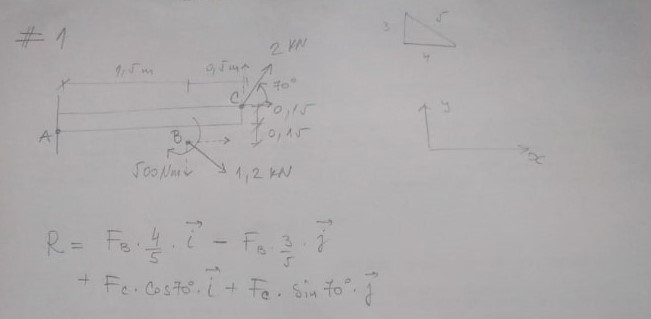 # 1
2 kN
3
5
4
1,5m
0,5m
70°
C
0,15
A
B
0,15
500Nm
1,2 kN
y
x
R = F_B · 4/5 · i⃗ − F_B · 3/5 · j⃗
+ F_C · cos70° · i⃗ + F_C · sin 70° · j⃗